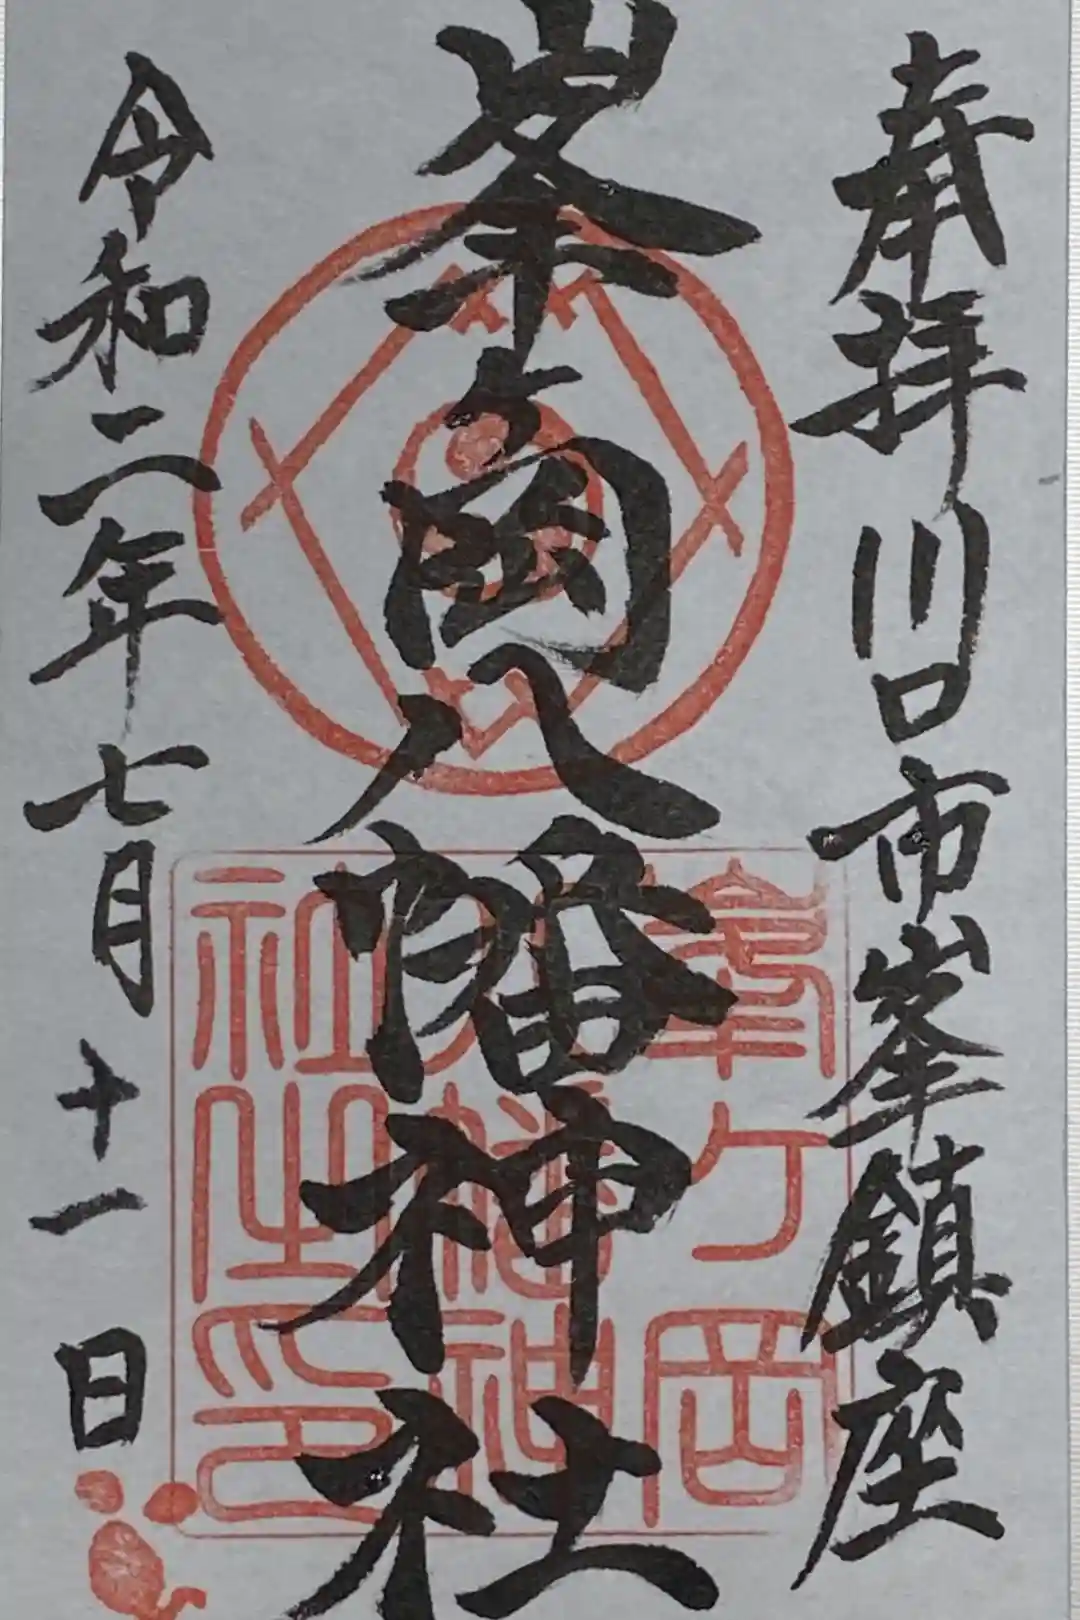 奉拝 川口市峯鎮座
峯ヶ岡八幡神社
令和二年七月十一日
峯ヶ岡
八幡神
社之印